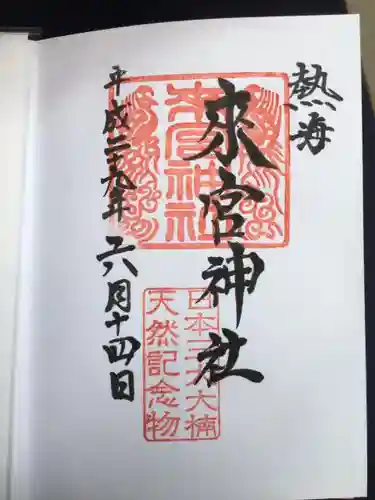 熱海
來宮神社
平成二十九年六月十四日
來宮神社
日本三大大楠
天然記念物